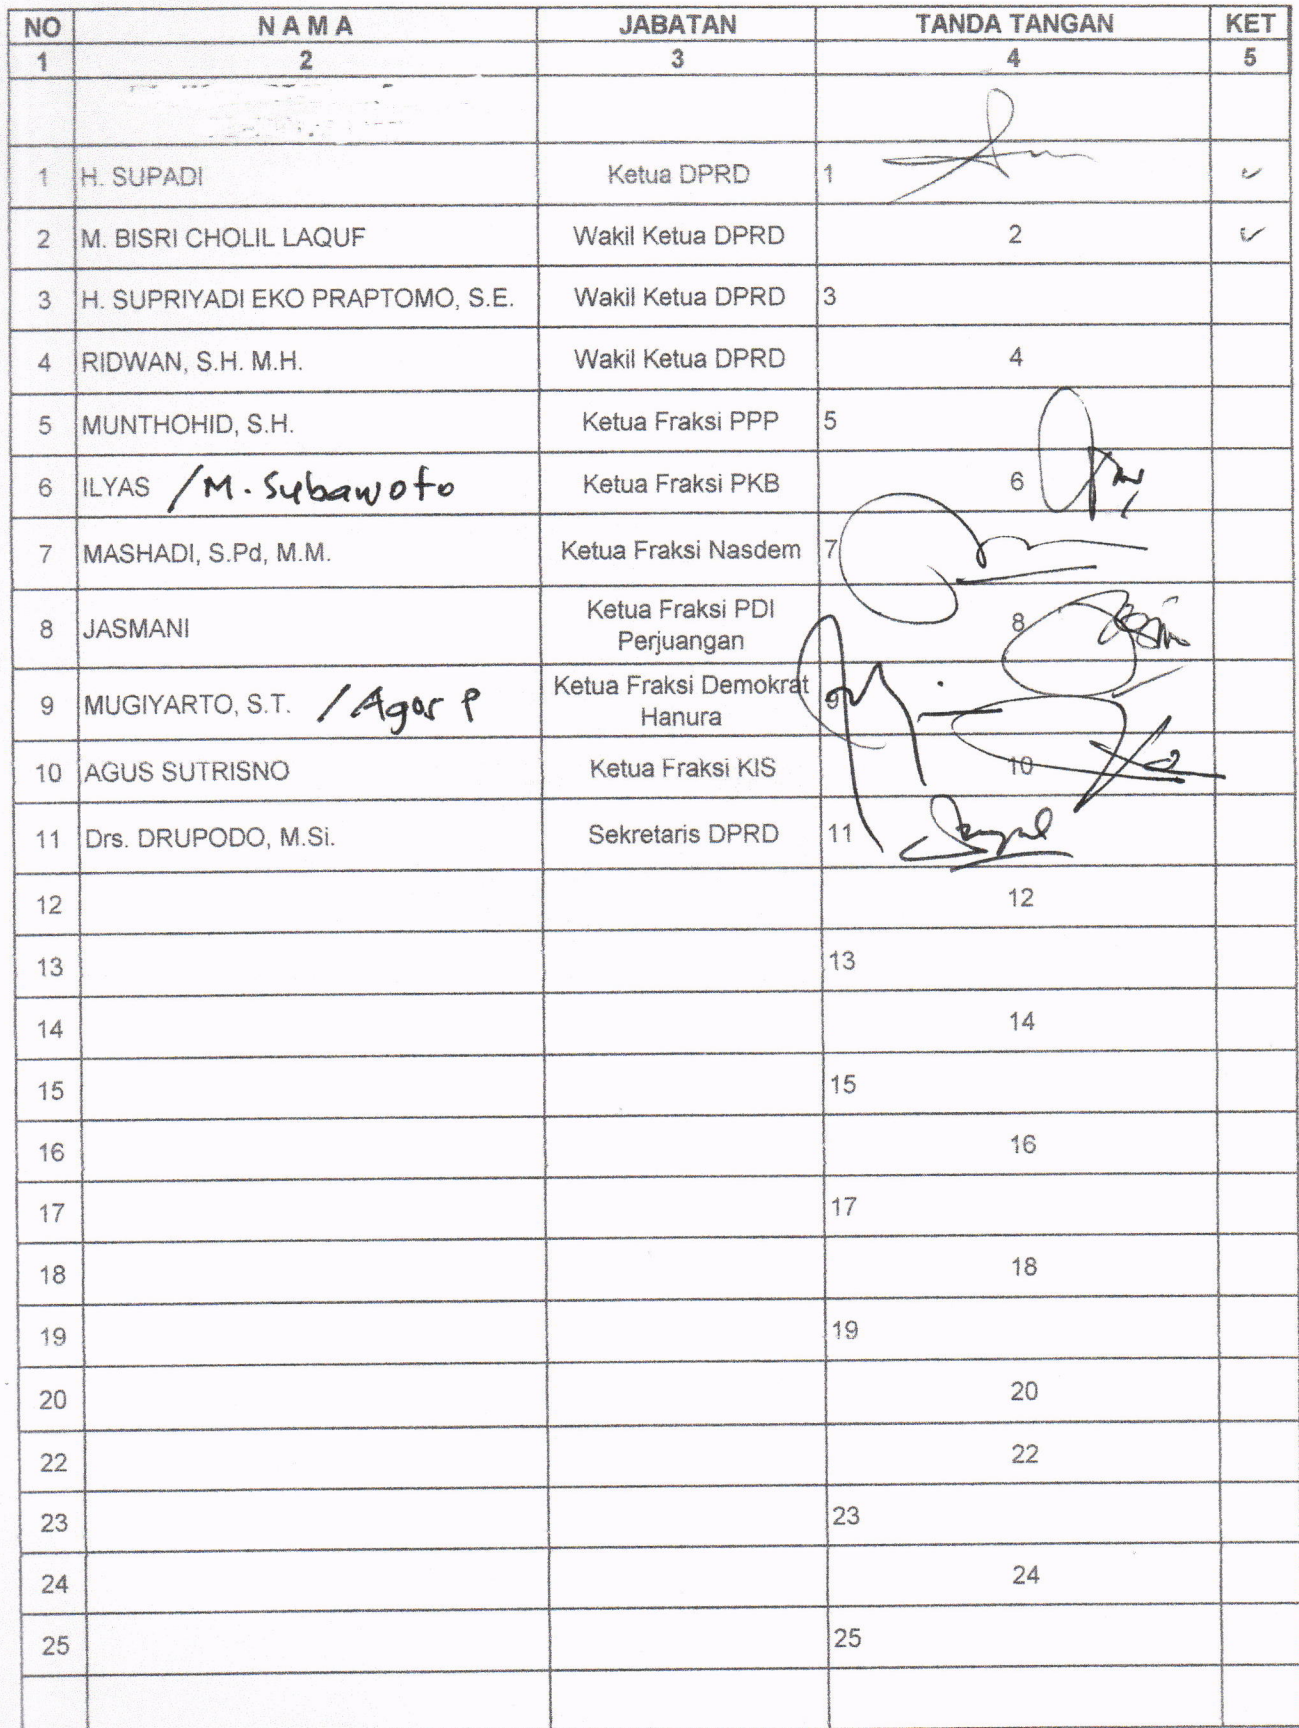 NO N A M A JABATAN TANDA TANGAN KET
1 2 3 4 5
1 H. SUPADI Ketua DPRD 1
2 M. BISRI CHOLIL LAQUF Wakil Ketua DPRD 2
3 H. SUPRIYADI EKO PRAPTOMO, S.E. Wakil Ketua DPRD 3
4 RIDWAN, S.H. M.H. Wakil Ketua DPRD 4
5 MUNTHOHID, S.H. Ketua Fraksi PPP 5
6 ILYAS /M. Subawoto Ketua Fraksi PKB 6
7 MASHADI, S.Pd, M.M. Ketua Fraksi Nasdem 7
8 JASMANI Ketua Fraksi PDI Perjuangan 8
9 MUGIYARTO, S.T. /Agus P Ketua Fraksi Demokrat Hanura 9
10 AGUS SUTRISNO Ketua Fraksi KIS 10
11 Drs. DRUPODO, M.Si. Sekretaris DPRD 11
12 12
13 13
14 14
15 15
16 16
17 17
18 18
19 19
20 20
22 22
23 23
24 24
25 25